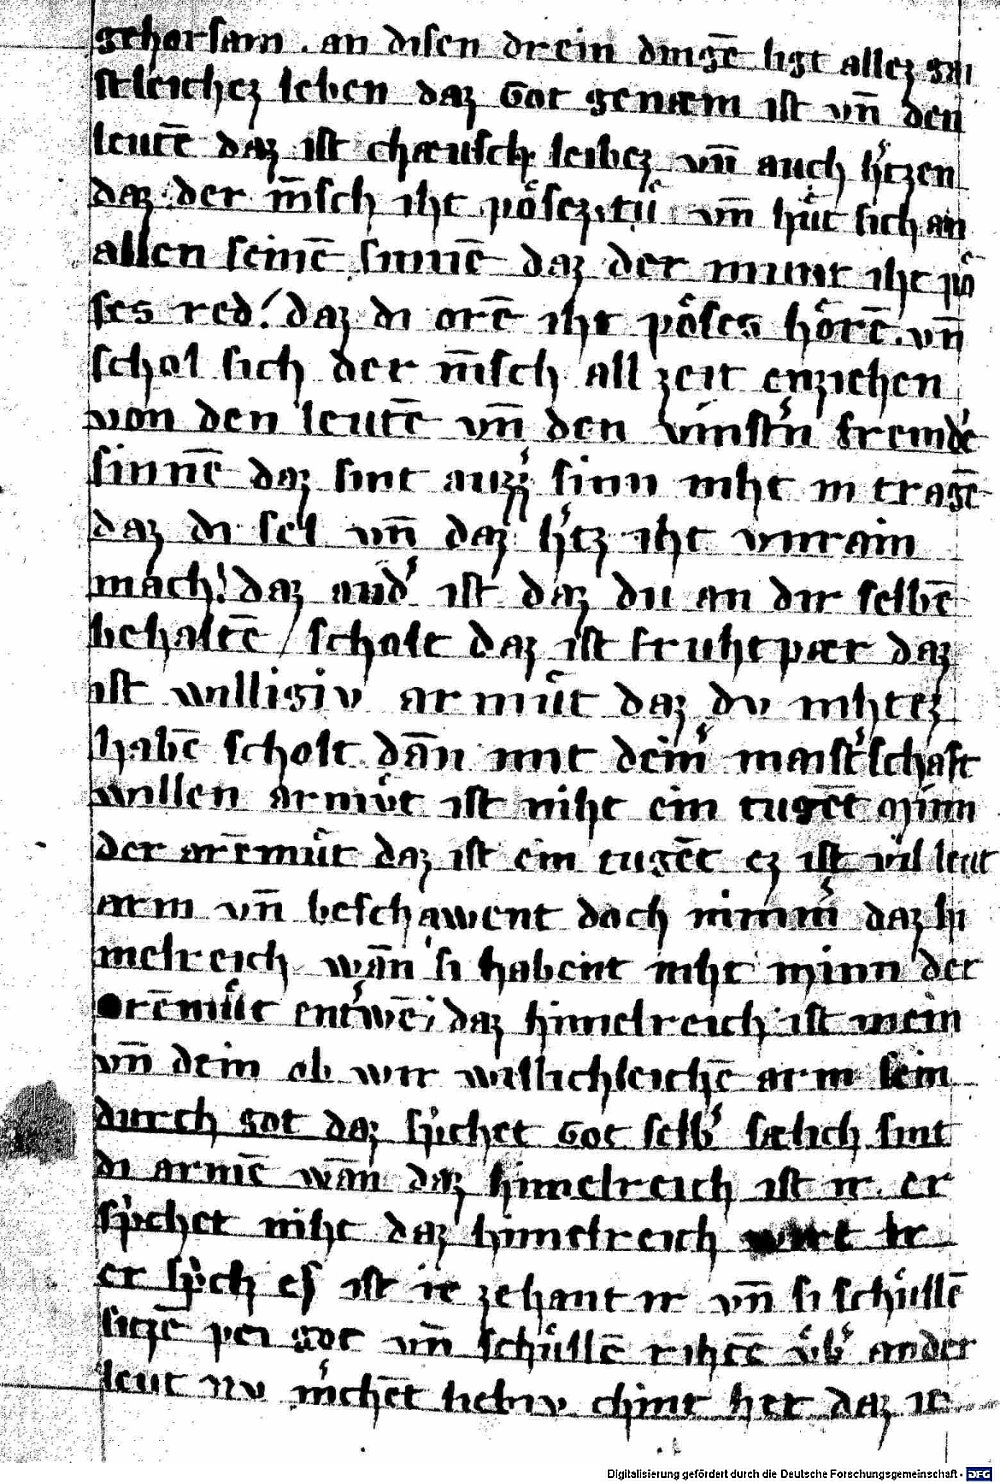 gehorsam . an disen drein dingē ligt allez gai
stleichez leben daz Got genæm ist vn̄ den
leutē daz ist chæusch leibez vn̄ auch h̾tzen
daz der m̄sch iht poͤsez tuͤ vn̄ huͤt sich an
allen seinē sinnē daz der munt iht poͤ
ses red / daz di orē iht poͤses hoͤrē . vn̄
schol sich der m̄sch all zeit enziehen
von den leutē vn̄ den vinst̾n fremdē
sinnē daz sint auzz̾ sinn niht in tragē
daz di sel vn̄ daz h̾tz iht vnrain
mach / daz and̾ ist daz du an dir selbē
behaltē / scholt daz ist fruhtpær daz
ist willigiv armuͤt daz du nihtez
habē scholt dān mit deim̾ maist̾schaft
willen armuͤt ist niht ein tugēt minn
der arēmuͤt daz ist ein tugēt ez ist vil leut
arm vn̄ beschawent doch nimm̾ daz hi
melreich wān si habent niht minn der
arēmuͤt ent̾wē / daz himelreich ist mein
vn̄ dein ob wir willichleichē arm sein
durch got daz sp̾ichet Got selb̾ sælich sint
di armē wān daz himelreich ist ir er
sp̾ichet niht daz himelreich wirt ir
er sp̾ich es ist ie zehant ir vn̄ si schuͤllē
sitzē pei got vn̄ schuͤllē rihtē vͤb̾ ander
leut nv m̾chēt liebiv chint het daz ie
Digitalisierung gefördert durch die Deutsche Forschungsgemeinschaft - DFG